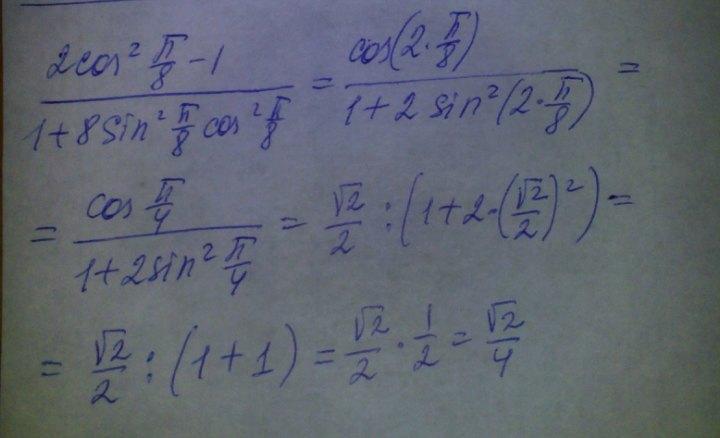 (2cos² π/8 - 1)/(1+8sin² π/8 cos² π/8) = cos(2·π/8)/(1+2 sin²(2·π/8)) =
= cos π/4/(1+2sin² π/4) = √2/2 : (1+2·(√2/2)²) =
= √2/2 : (1+1) = √2/2 · 1/2 = √2/4